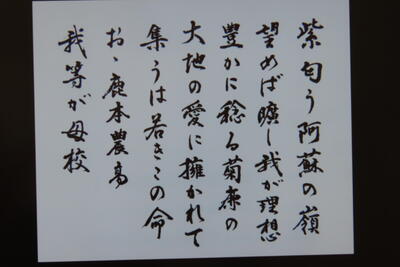 紫匂う阿蘇の嶺
望めば曠し我が理想
豊かに稔る菊鹿の
大地の愛に擁かれて
集うは若きこの命
おゝ鹿本農高
我等が母校